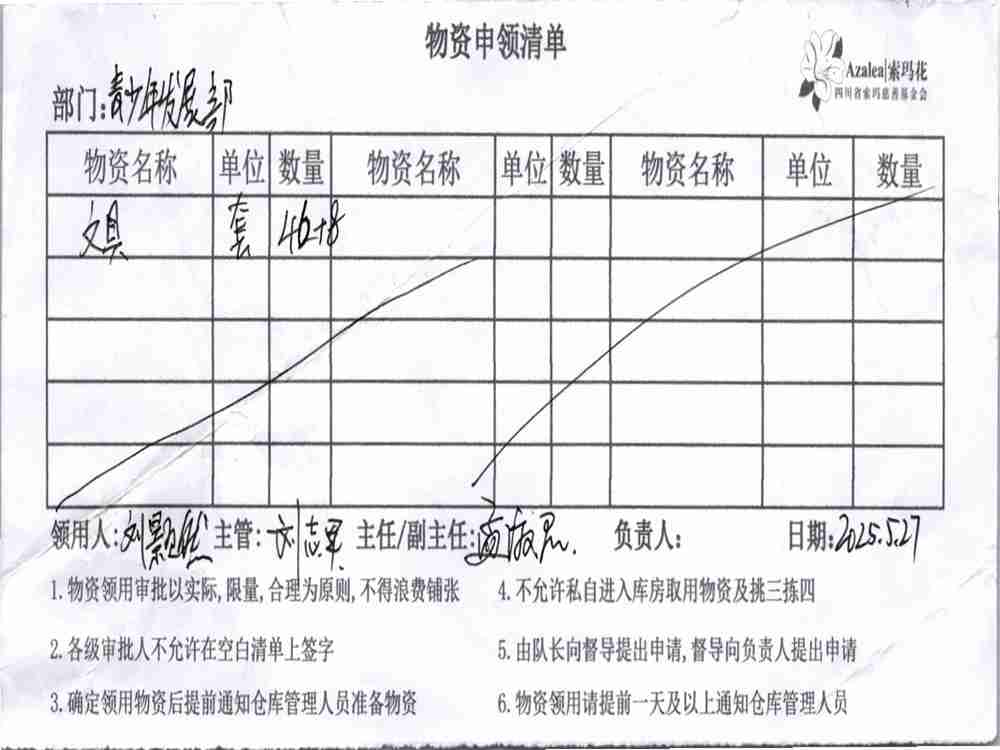 物资申领清单
Azalea|索玛花
四川省索玛慈善基金会
部门:青少年发展部
物资名称 单位 数量 物资名称 单位 数量 物资名称 单位 数量
文具 套 46+8
领用人:刘颢然 主管:刘志军 主任/副主任: 负责人: 日期:2025.5.27
1.物资领用审批以实际,限量,合理为原则,不得浪费铺张 4.不允许私自进入库房取用物资及挑三拣四
2.各级审批人不允许在空白清单上签字 5.由队长向督导提出申请,督导向负责人提出申请
3.确定领用物资后提前通知仓库管理人员准备物资 6.物资领用请提前一天及以上通知仓库管理人员